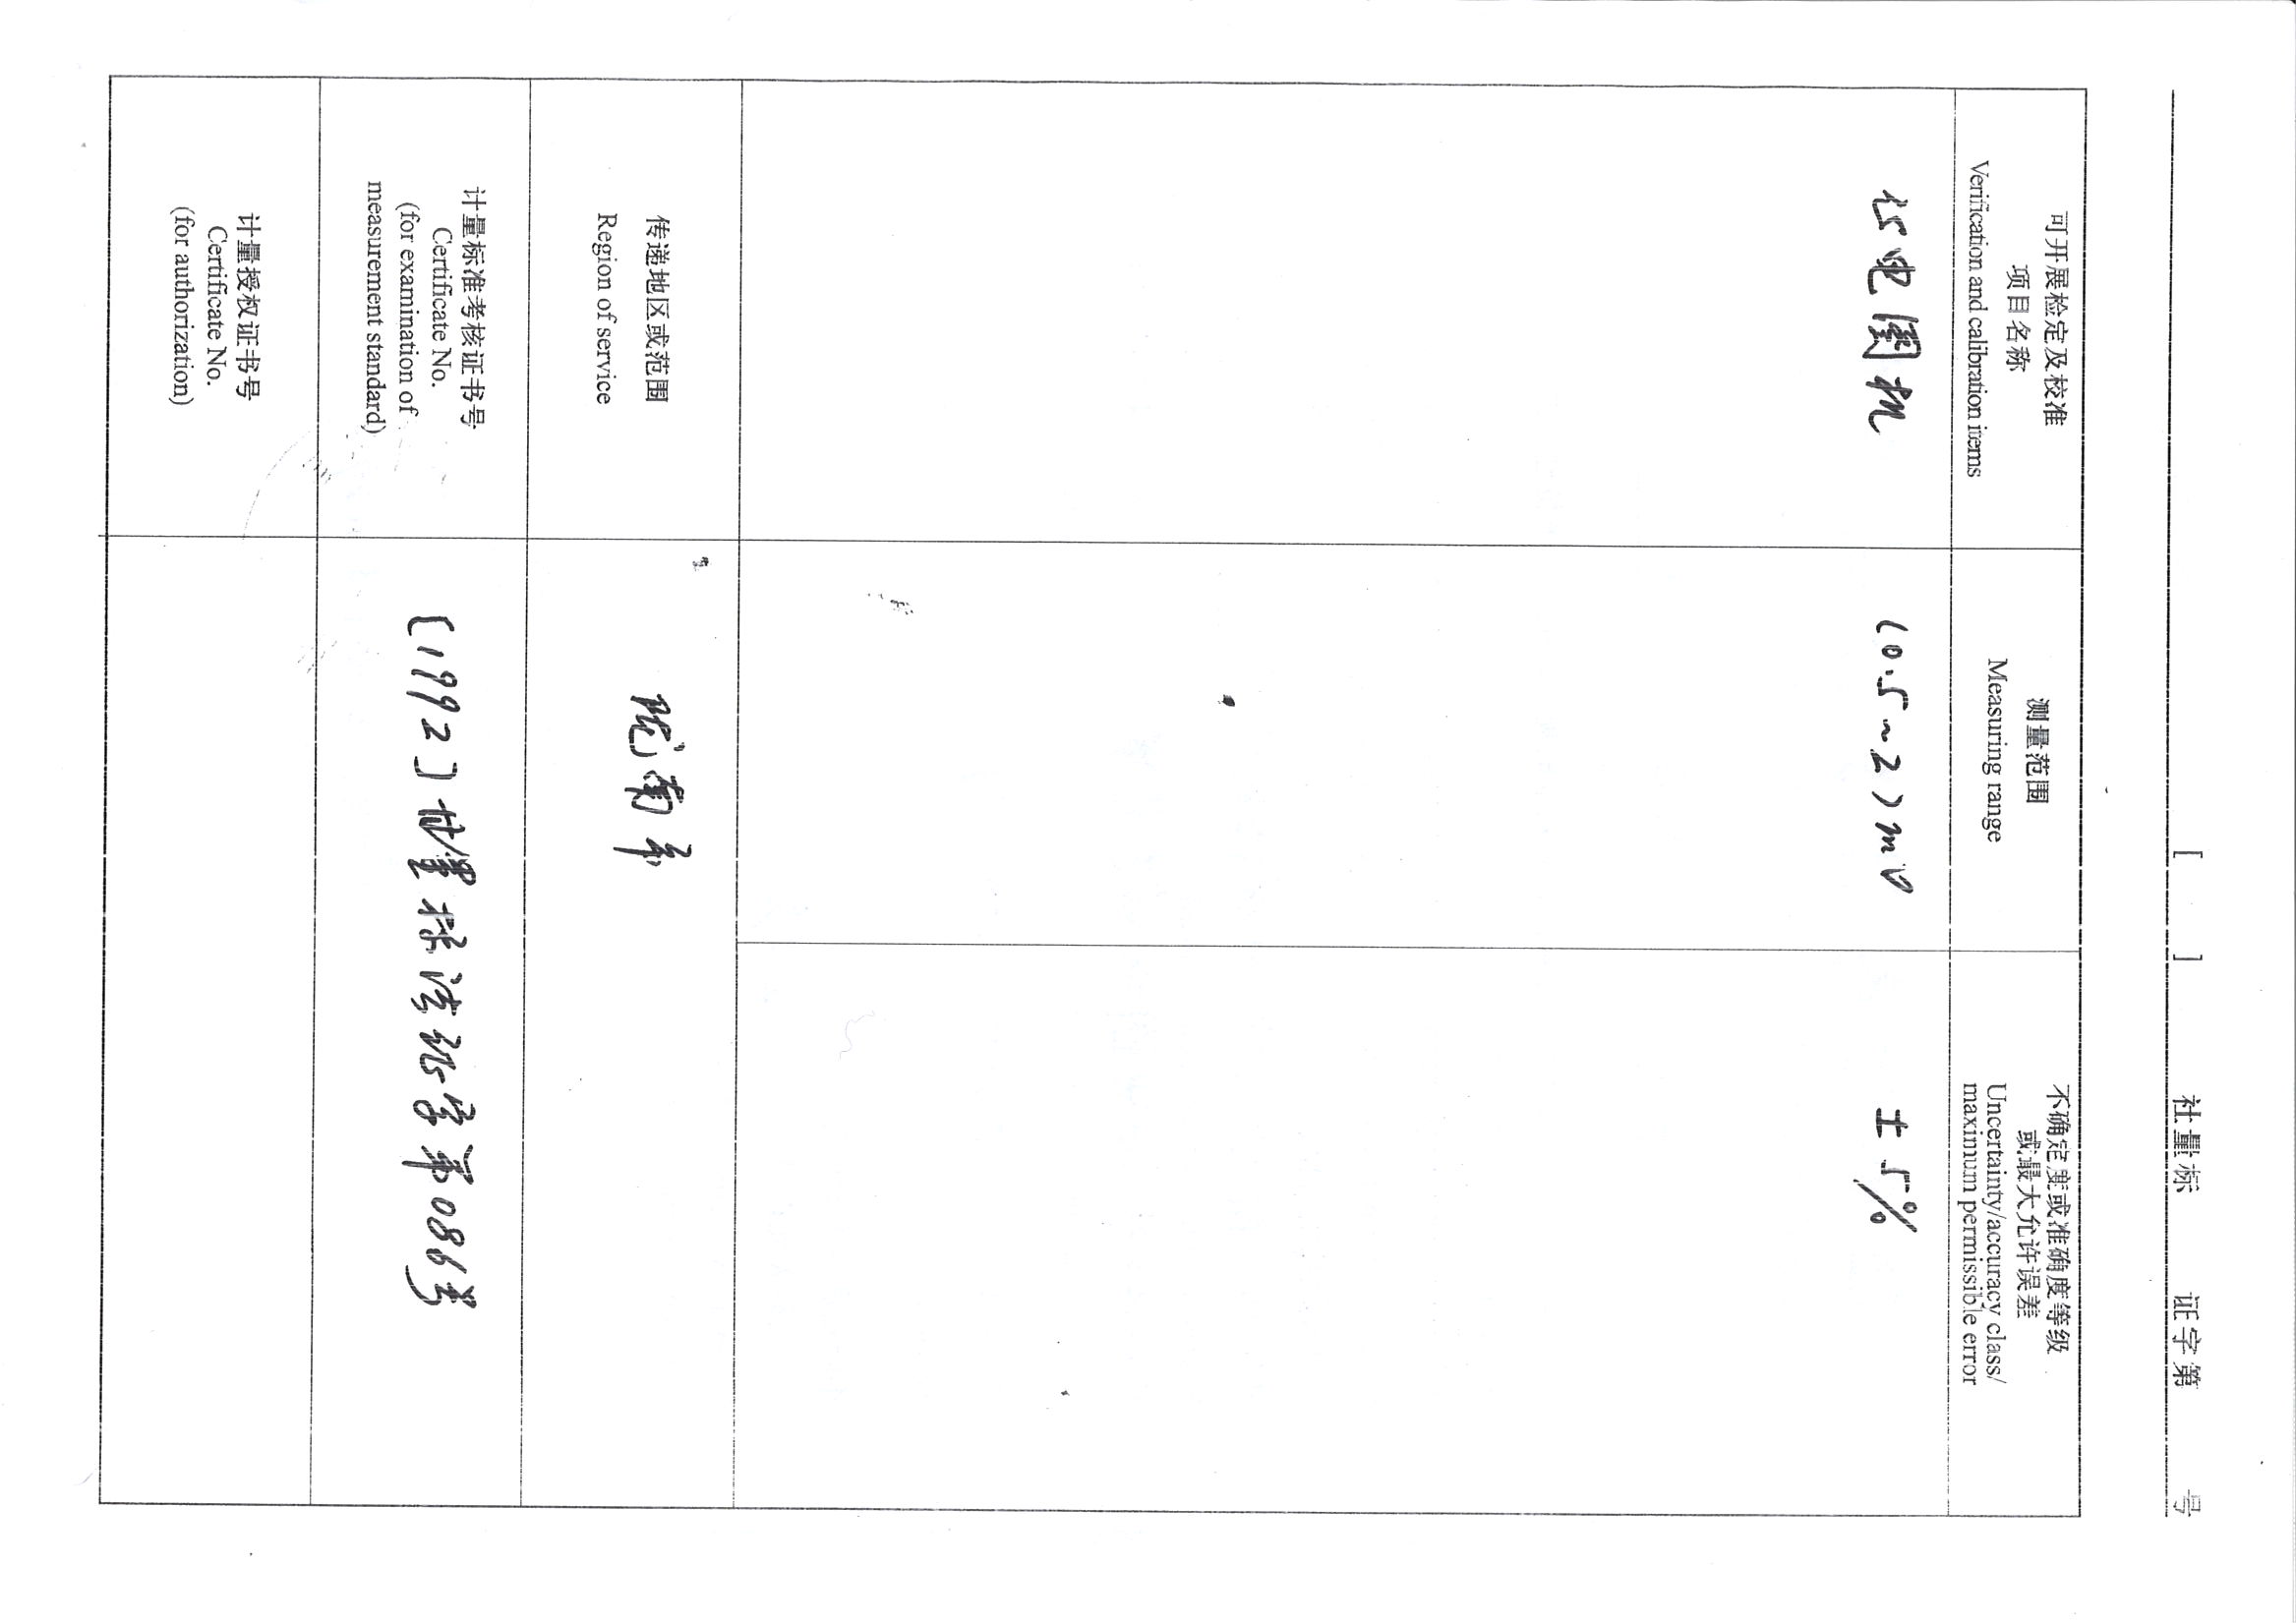 [ ] 社量标 证字第 号
可开展检定及校准
项目名称
Verification and calibration items
测量范围
Measuring range
不确定度或准确度等级
或最大允许误差
Uncertainty/accuracy class/
maximum permissible error
心电图机
(0.5~2)mV
±5%
传递地区或范围
Region of service
陇南市
计量标准考核证书号
Certificate No.
(for examination of
measurement standard)
[1992]甘量标法证字第086号
计量授权证书号
Certificate No.
(for authorization)